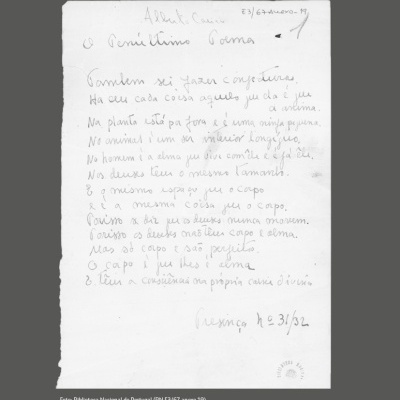 Albert. Caeiro
E3/67 anexo-19
1
O Penúltimo Poema
Tambem sei fazer conjecturas.
Ha em cada coisa aquelo que ella é que
a anima.
Na planta está por fora e é uma nimpha pequena.
No animal é um ser interior longiquo,
No homem é a alma que vive com êlle e é já êlle.
Nos deuses tem o mesmo tamanho
E o mesmo espaço que o corpo
e é a mesma coisa que o corpo.
Porisso se diz que os deuses nunca morrem.
Porisso os deuses não teem corpo e alma
Mas só corpo e são perfeitos.
O corpo é que lhes é alma
E têm a consciência na própria carne divina
Presença Nº 31/32
Foto: Biblioteca Nacional de Portugal (BN E3/67 anexo 19)